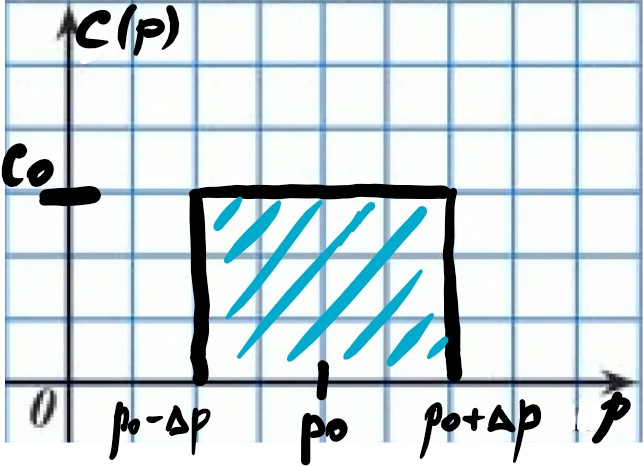 C(p)
C0
0
p0-Δp
p0
p0+Δp
p